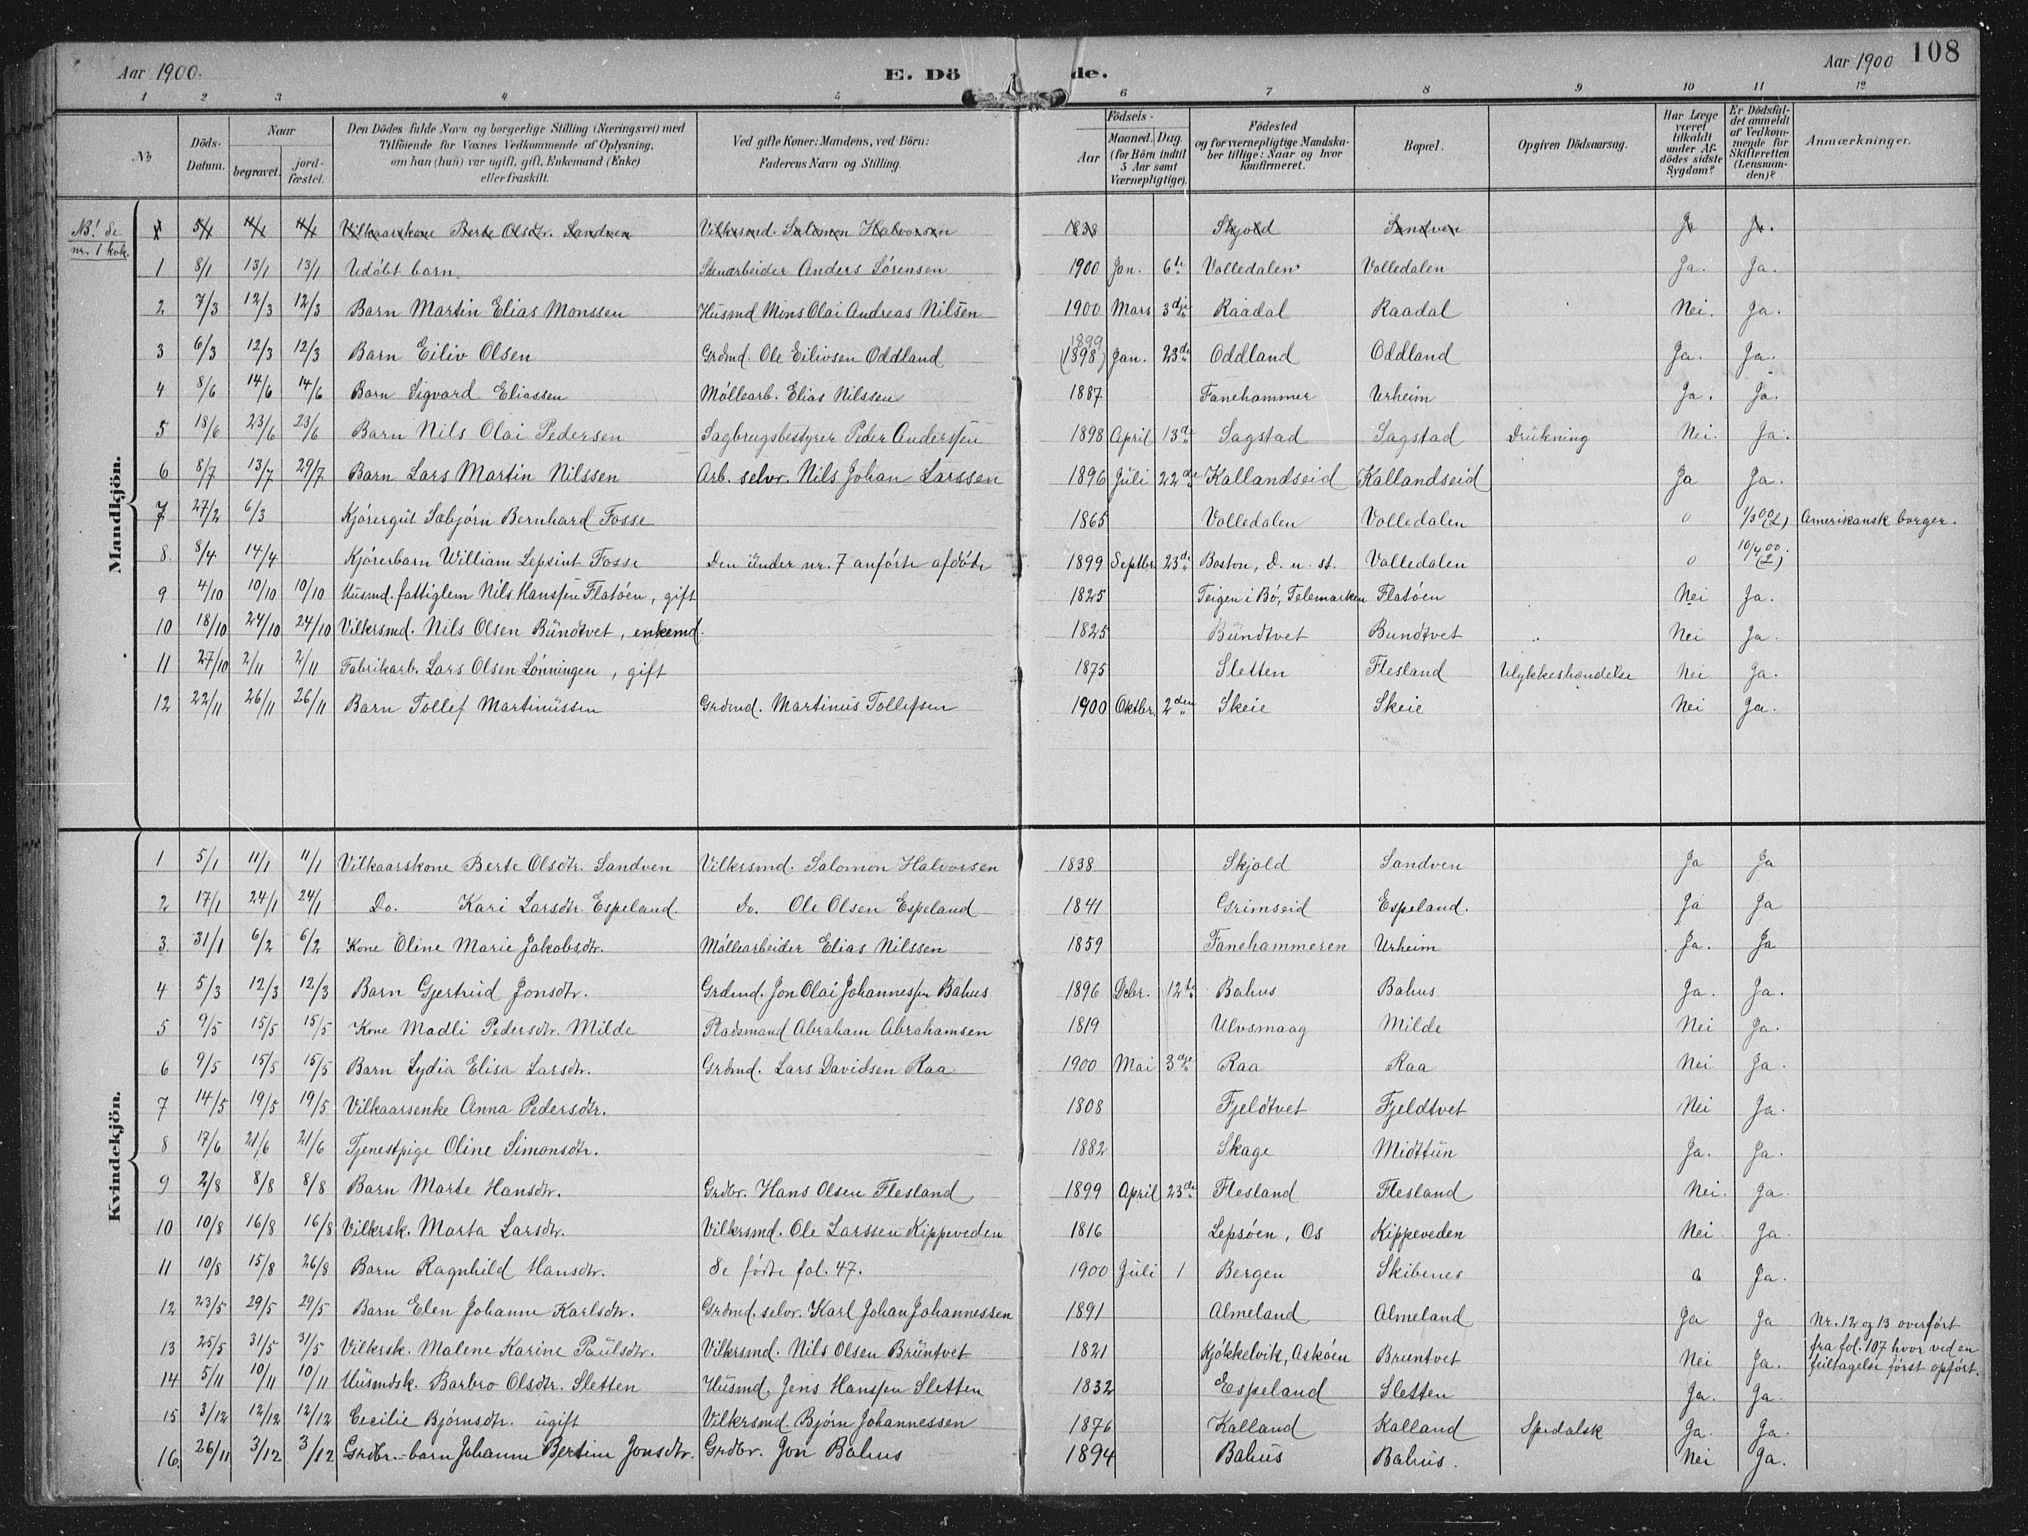 Aar 1900. E. Dö de. Aar 1900 108
1 2 3 4 5 6 7 8 9 10 11 12
No
Döds-Datum.
Naar
begravet.
jord-fæstet.
Den Dödes fulde Navn og borgerlige Stilling (Næringsvei) med
Tilföiende for Voxnes Vedkommende af Oplysning,
om han (hun) var ugift, gift, Enkemand (Enke)
eller fraskilt.
Ved gifte Koner: Mandens, ved Börn:
Faderens Navn og Stilling.
Födsels-
Aar
Maaned. Dag.
(for Börn indtil
5 Aar samt
Værnepligtige).
Födested
og for værnepligtige Mandska-
ber tillige: Naar og hvor
konfirmeret.
Bopæl.
Opgiven Dödsaarsag.
Har Læge
været
tilkaldt
under Af-
dödes sidste
Sygdom?
Er Dödsfal-
det anmeldt
af Vedkom-
mende for
Skifteretten
(Lensman-
den)?
Anmærkninger.
Mandkjön.
NB! Se
nr. 1 kvk.
1 5/1 11/1 11/1 Vilkaarskone Berte Olsdtr. Sandven Vilkrsmd. Salomon Halvorsen 1838 Skjold Sandven Ja Ja.
1 8/1 13/1 13/1 Udöbt barn. Stenarbeider Anders Sörensen 1900 Jan. 6te Volledalen Volledalen Ja. Ja.
2 7/3 12/3 12/3 Barn Martin Elias Monssen Husmd Mons Olai Andreas Nilsen 1900 Mars 3dje Raadal Raadal Nei. Ja.
3 6/3 12/3 12/3 Barn Eiliv Olsen Grdmd. Ole Eilivsen Oddland 1899 (1898) Jan. 23de Oddland Oddland Ja. Ja.
4 8/6 14/6 14/6 Barn Sigvard Eliassen Möllearb. Elias Nilssen 1887 Fanehammer Urheim Ja. Ja.
5 18/6 23/6 23/6 Barn Nils Olai Pedersen Sagbrugsbestyrer Peder Anderssen 1898 April 13de Sagstad Sagstad Drukning Nei. Ja.
6 8/7 13/7 29/7 Barn Lars Martin Nilssen Arb. selvr. Nils Johan Larssen 1896 Juli 22de Kallandseid Kallandseid Ja Ja.
7 27/2 6/3 Kjörergut Sæbjörn Bernhard Fosse 1865 Volledalen Volledalen 0 1/3 00 (L) Amerikansk borger.
8. 8/4 14/4 Kjörerbarn William Lepsint Fosse Den under nr. 7 anförte afdöde 1899 Septbr. 23de Boston, D. u. st. Volledalen 0 10/4 00. (L)
9 4/10 10/10 10/10 Husmd. fattiglem Nils Hanssen Flatöen, gift 1825 Teigen i Bö, Telemarken Flatöen Nei Ja.
10 18/10 24/10 24/10 Vilkrsmd. Nils Olsen Bündtvet, enkemd. 1825 Bündtvet Bundtvet Nei Ja.
11 27/10 2/11 2/11 Fabrikarb. Lars Olsen Lönningen, gift 1875 Sletten Flesland Ulykkeshændelse Nei Ja.
12 22/11 26/11 26/11 Barn Tollef Martinüssen Grdmd. Martinus Tollefsen 1900 Oktbr. 2den Skeie Skeie Nei Ja.
Kvindekjön.
1 5/1 11/1 11/1 Vilkaarskone Berte Olsdtr. Sandven Vilkrsmd. Salomon Halvorsen 1838 Skjold Sandven Ja Ja
2 17/1 24/1 24/1 Do. Kari Larsdtr. Espeland. Do. Ole Olsen Espeland 1841 Grimseid Espeland. Ja Ja
3. 31/1 6/2 6/2 Kone Oline Marie Jakobsdtr. Möllearbeider Elias Nilssen 1859 Fanehammeren Urheim Ja. Ja
4 5/3 12/3 12/3 Barn Gjertrud Jonsdtr. Grdmd. Jon Olai Johannessen Bahus 1896 Debr. 12te Bahus Bahus Ja. Ja.
5 9/5 15/5 15/5 Kone Madli Pedersdtr. Milde Pladsmand Abraham Abrahamsen 1819 Ulvsmaag Milde Nei Ja.
6 9/5 15/5 15/5 Barn Lydia Elisa Larsdtr. Grdmd. Lars Davidsen Raa 1900 Mai 3dje Raa Raa Nei Ja.
7 14/5 19/5 19/5 Vilkaarsenke Anna Pedersdtr. 1808 Fjeldtvet Fjeldtvet Nei Ja.
8 17/6 21/6 21/6 Tjenestpige Oline Simonsdtr. 1882 Skage Midttün Ja. Ja.
9 2/8 8/8 8/8 Barn Marte Hansdtr. Grdbr. Hans Olsen Flesland 1899 April 23de Flesland Flesland Nei. Ja.
10 10/8 16/8 16/8 Vilkrsk. Marta Larsdtr. Vilkrsmd. Ole Larssen Kippeveden 1816 Lepsöen, Os Kippeveden Nei. Ja.
11 10/8 15/8 26/8 Barn Ragnhild Hansdtr. Se födte fol. 47. 1900 Juli 1 Bergen Skibenes 0 Ja.
12 23/5 29/5 29/5 Barn Elen Johanne Karlsdtr. Grdmd. selvr. Karl Johan Johannessen 1891 Almeland Almeland Ja Ja Nr. 12 og 13 overfört
13 25/5 31/5 31/5 Vilkrsk. Malene Karine Paulsdtr. Vilkrsmd. Nils Olsen Bruntvet 1821 Kjökkelvik, Asköen Bruntvet Nei Ja. fra fol. 107 hvor ved en
feiltagelse först opfört.
14 5/11 10/11 10/11 Husmdsk. Barbro Olsdtr. Sletten Husmd. Jens Hanssen Sletten 1832 Espeland Sletten Ja. Ja.
15 3/12 12/12 12/12 Cecilie Björnsdtr. ugift Vilkrsmd. Björn Johannessen 1876 Kalland Kalland Spedalsk Ja. Ja.
16. 26/11 3/12 3/12 Grdbr.-barn Johanne Bertine Jonsdtr. Grdbr. Jon Bahus 1894 Bahus Bahus. Nei Ja.